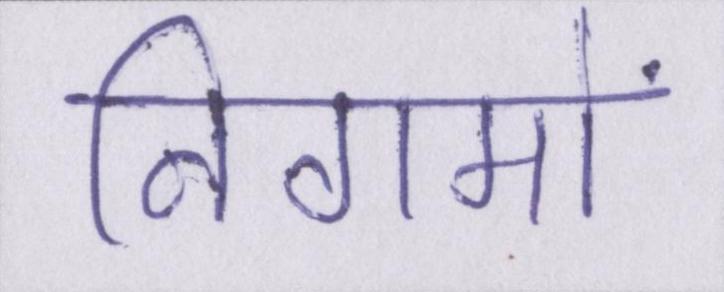 निगमों